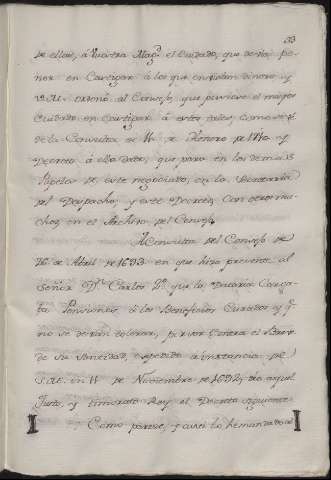 33
de ellas, á Vuestra Magd. el Cuidado, que devía po-
ner en Castigar á los que embiaban dinero, y
S.M. ordenó al Consejo, que pusiese el mayor
Cuidado en Castigar á estos tales, como se
de la Consulta de de Henero de y
Decreto á ella dado, que para en los demas
Papeles de este negociado, en la Secretaría
del Despacho, y este Decreto, con otros mu-
chos, en el Archivo del Consejo.
A Consulta del Consejo de
26 de Abril de 1693 en que hizo presente al
Señor Dn. Carlos 2º que la Dataría Carga-
ba Pensiones á los Beneficios Curados y qe.
no se devían tolerar, por ser Contra el Breve
de Su Santidad, expedido a instancia de
S.M. en de Noviembre de 1692, dió aquel
Justo, y timorato Rey el Decreto siguiente
Como parece, y assi lo he mandado